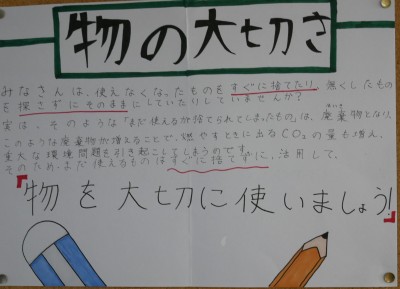 物の大切さ
みなさんは、使えなくなったものをすぐに捨てたり、無くしたもの
を探さずにそのままにしていたりしていませんか？
実は、そのような「まだ使えるが捨てられてしまったもの」は、廃棄物となり、
このような廃棄物が増えることで、燃やすときに出るCO₂の量も増え、
重大な環境問題を引き起こしてしまうのです。
そのため、まだ使えるものはすぐに捨てずに、活用して、
物を大切に使いましょう!